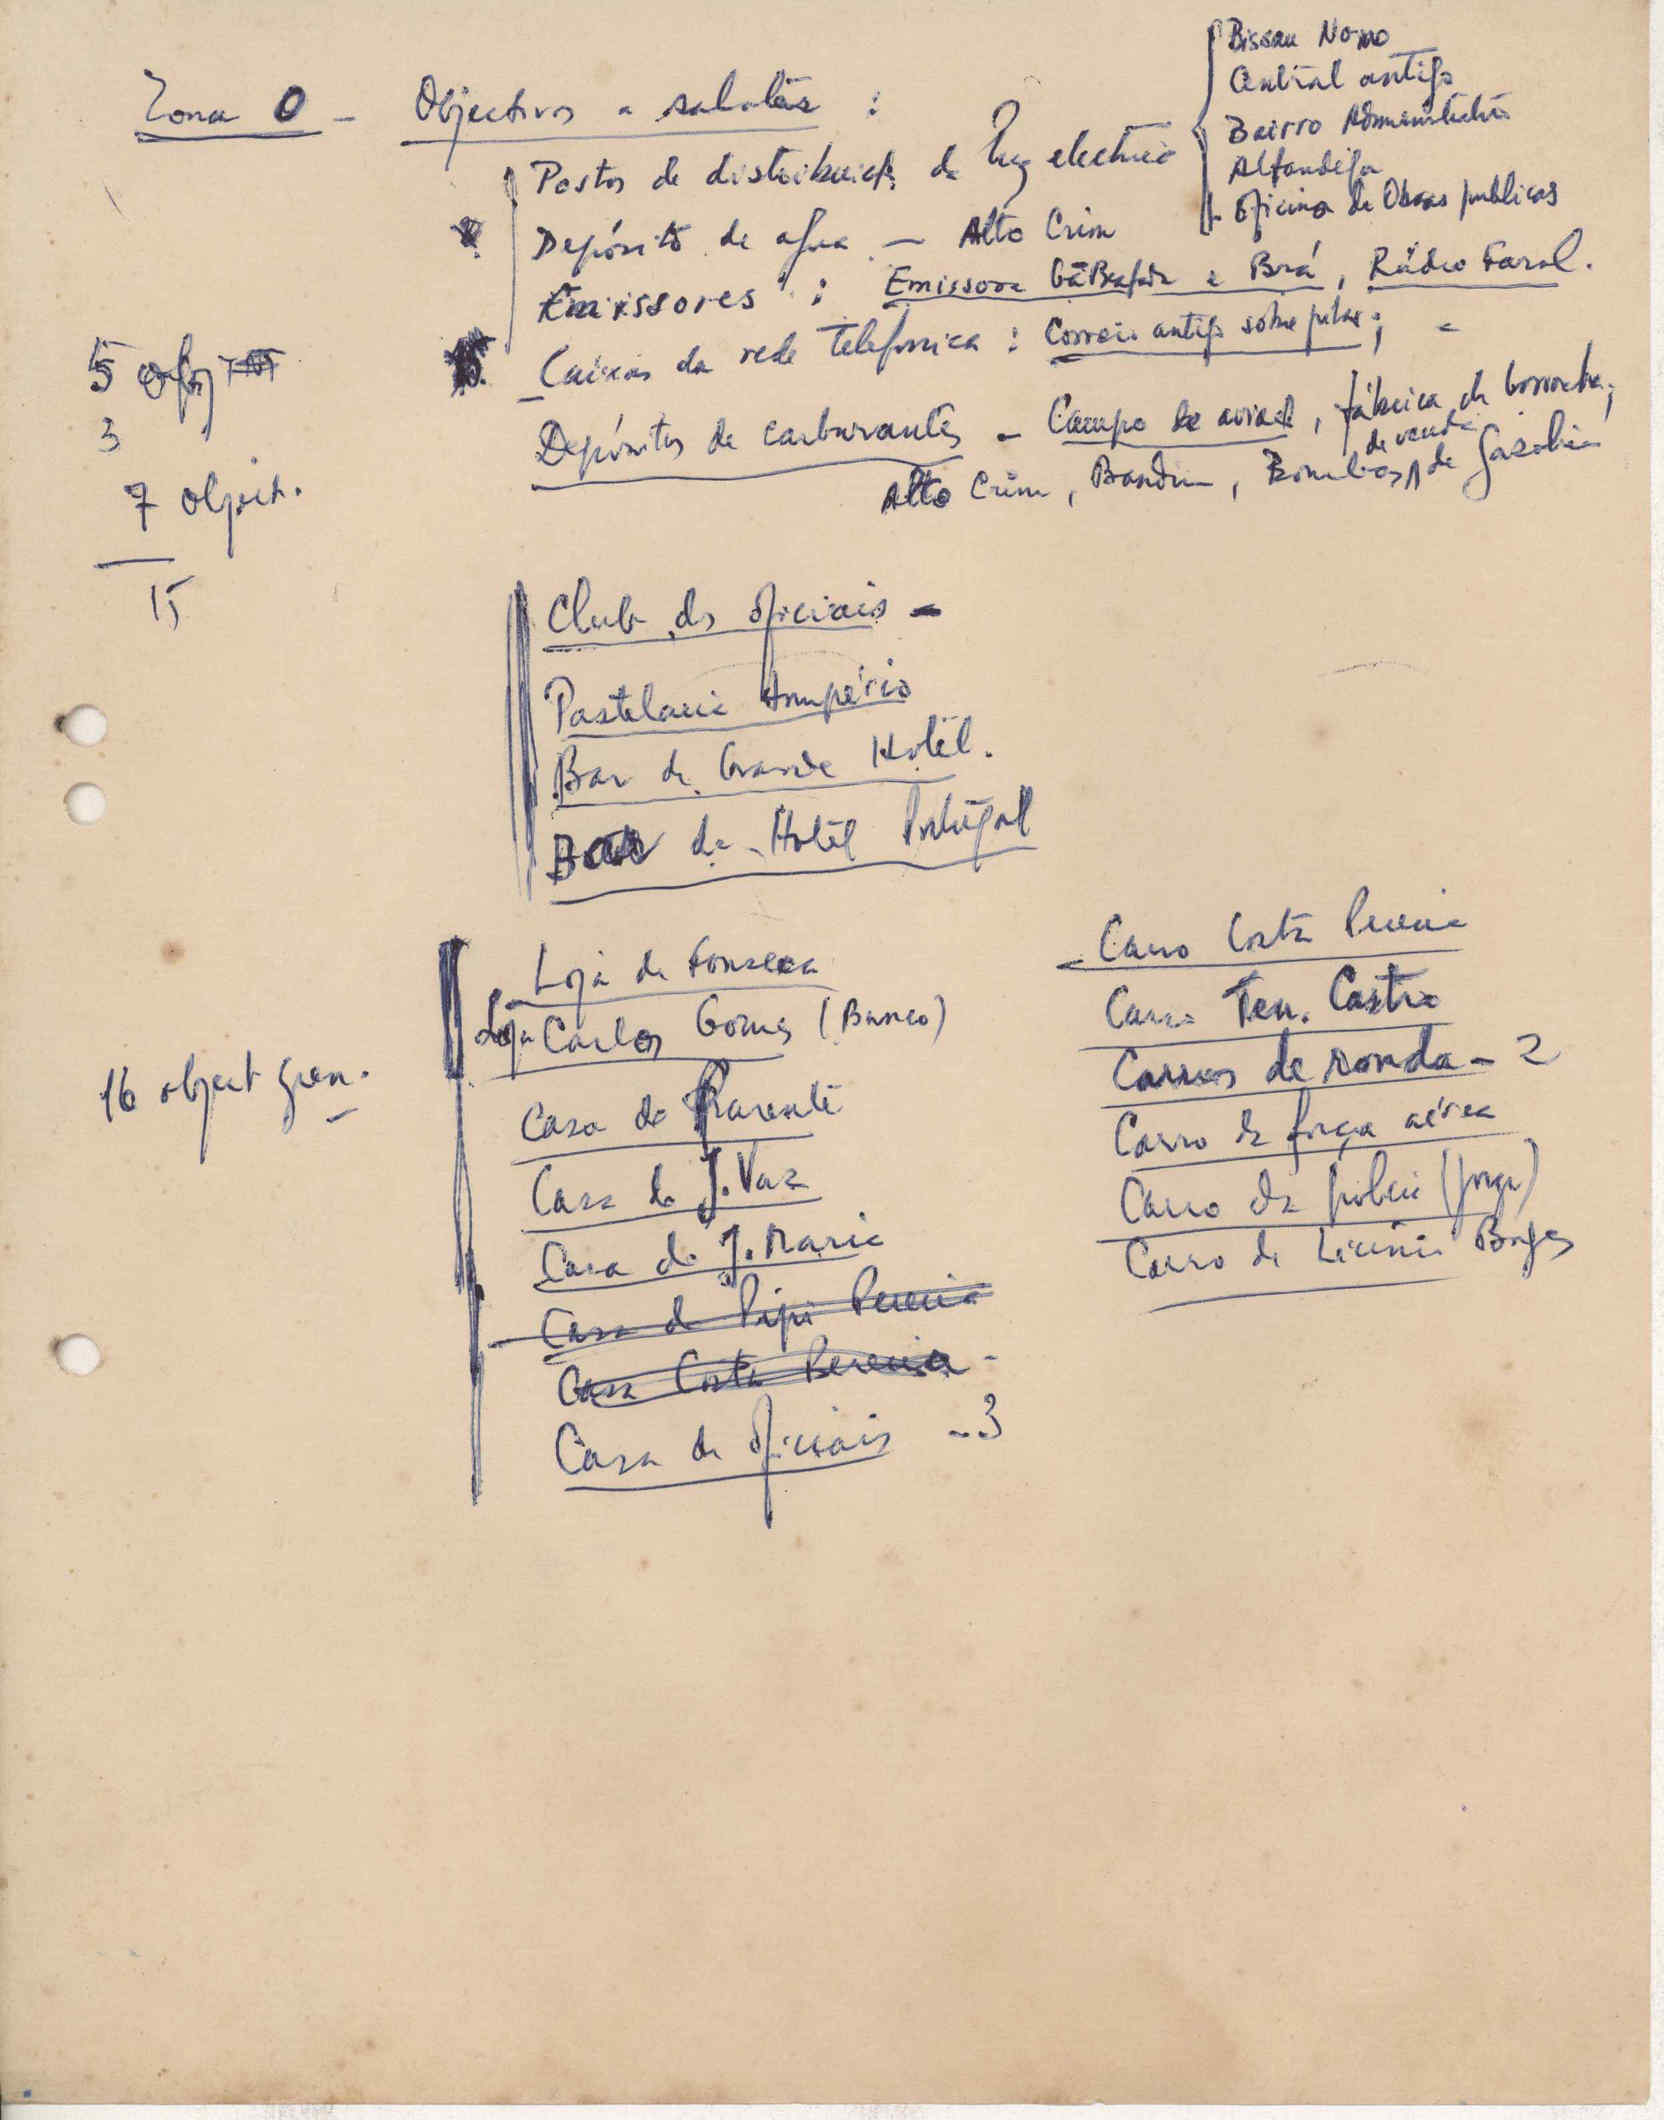 Zona 0 - Objectivos a sabotar :
Postos de distribuição de luz electrica
Bissau Novo
Central antiga
Bairro Administrativo
Alfandega
Oficina de Obras publicas
Depósito de agua - Alto Crim
Emissores : Emissora Gã Biafada e Brá, Rádio Farol.
Caixas da rede telefonica : Correio antigo sobre pilar;
Depósitos de carburantes - Campo de aviação, fábrica de borracha;
Alto Crim, Bandim, Bombas de venda de gasolina
5 Obj
3
7 Object.
15
Club dos oficiais -
Pastelaria Império
Bar do Grande Hotel.
Bar do Hotel Portugal
16 object gren.
Loja do Fonseca
Loja Carlos Gomes (Banco)
Casa do Parente
Casa do J. Vaz
Casa do J. Maria
Casa do Pipi Pereira
Casa Costa Pereira -
Casa de oficiais - 3
Carro Costa Pereira
Carro Ten. Castro
Carros de ronda - 2
Carro da força aérea
Carro da policia (Jorge)
Carro do Licinio Borges